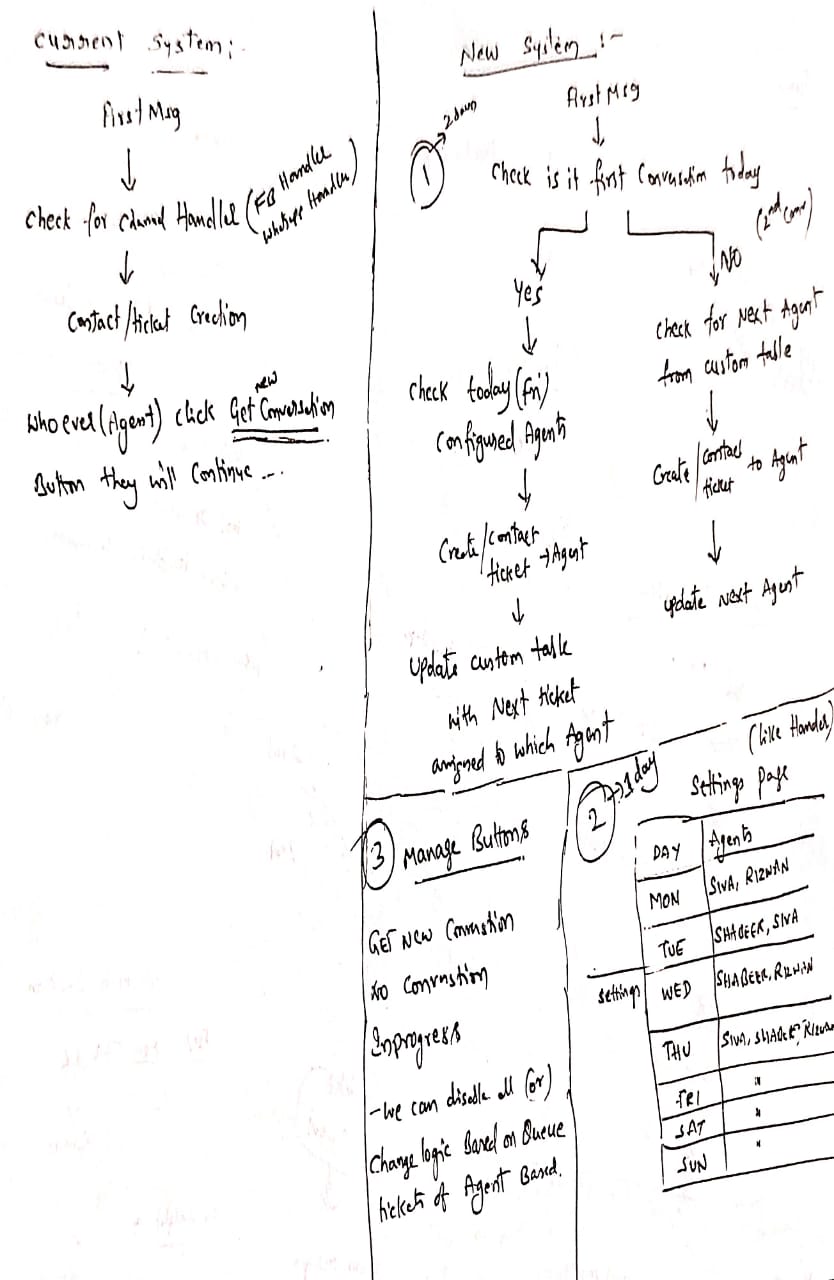 Current System:-
First Msg
Check for Channel Handler (FB Handler
Whatsapp Handler)
Contact/ticket Creation
Who ever (Agent) click Get new Conversation
Button they will Continue ...
New System :-
First Msg
1 → 2 days
Check is it first Conversation today
Yes
Check today (Fri)
Configured Agents
Create/contact
ticket → Agent
Update custom table
with Next ticket
assigned to which Agent
NO (2nd Conv)
Check for Next Agent
from custom table
Create/contact
ticket to Agent
update Next Agent
3 Manage Buttons
GET NEW Conversation
No Conversation
Inprogress
- We can disable all (or)
Change logic Based on Queue
tickets of Agent Based.
2 → 1 day
(like Handler)
Settings Page
Settings
DAY Agents
MON SIVA, RIZWAN
TUE SHABEER, SIVA
WED SHABEER, RIZWAN
THU SIVA, SHABEER, RIZWAN
FRI "
SAT "
SUN "